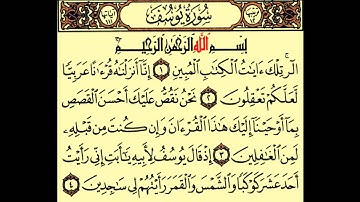 سُورَةُ يُوسُفَ
بِسْمِ اللَّهِ الرَّحْمَٰنِ الرَّحِيمِ
الٓر ۚ تِلْكَ ءَايَٰتُ ٱلْكِتَٰبِ ٱلْمُبِينِ ١ إِنَّآ أَنزَلْنَٰهُ قُرْءَٰنًا عَرَبِيًّا
لَّعَلَّكُمْ تَعْقِلُونَ ٢ نَحْنُ نَقُصُّ عَلَيْكَ أَحْسَنَ ٱلْقَصَصِ
بِمَآ أَوْحَيْنَآ إِلَيْكَ هَٰذَا ٱلْقُرْءَانَ وَإِن كُنتَ مِن قَبْلِهِۦ
لَمِنَ ٱلْغَٰفِلِينَ ٣ إِذْ قَالَ يُوسُفُ لِأَبِيهِ يَٰٓأَبَتِ إِنِّى رَأَيْتُ
أَحَدَ عَشَرَ كَوْكَبًا وَٱلشَّمْسَ وَٱلْقَمَرَ رَأَيْتُهُمْ لِى سَٰجِدِينَ ٤